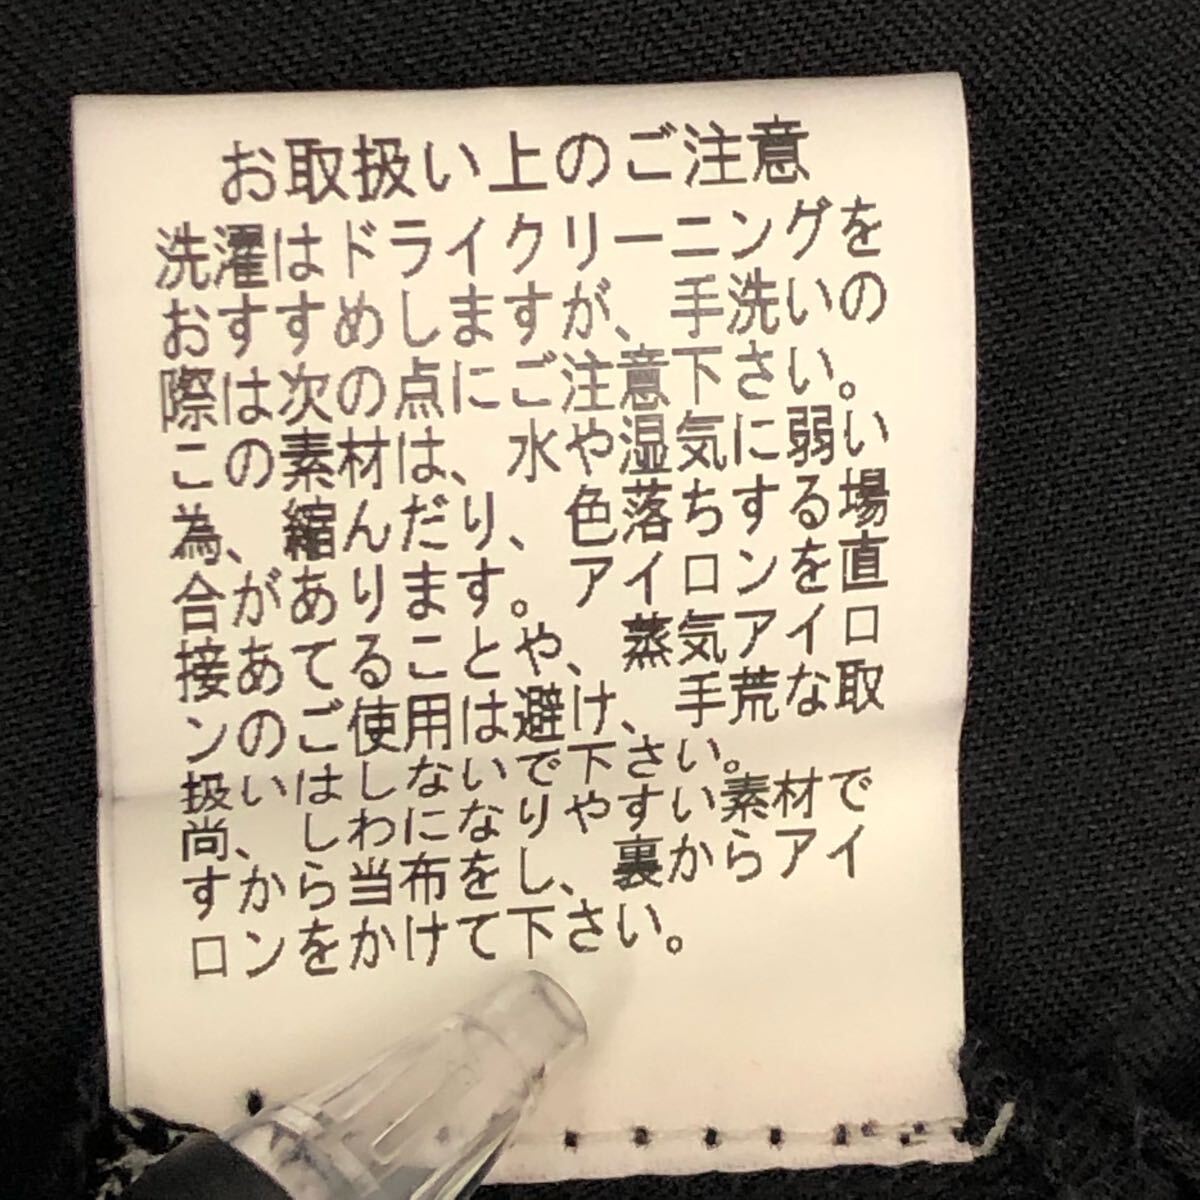 お取扱い上のご注意
洗濯はドライクリーニングを
おすすめしますが、手洗いの
際は次の点にご注意下さい。
この素材は、水や湿気に弱い
為、縮んだり、色落ちする場
合があります。アイロンを直
接あてることや、蒸気アイロ
ンのご使用は避け、手荒な取
扱いはしないで下さい。
尚、しわになりやすい素材で
すから当布をし、裏からアイ
ロンをかけて下さい。